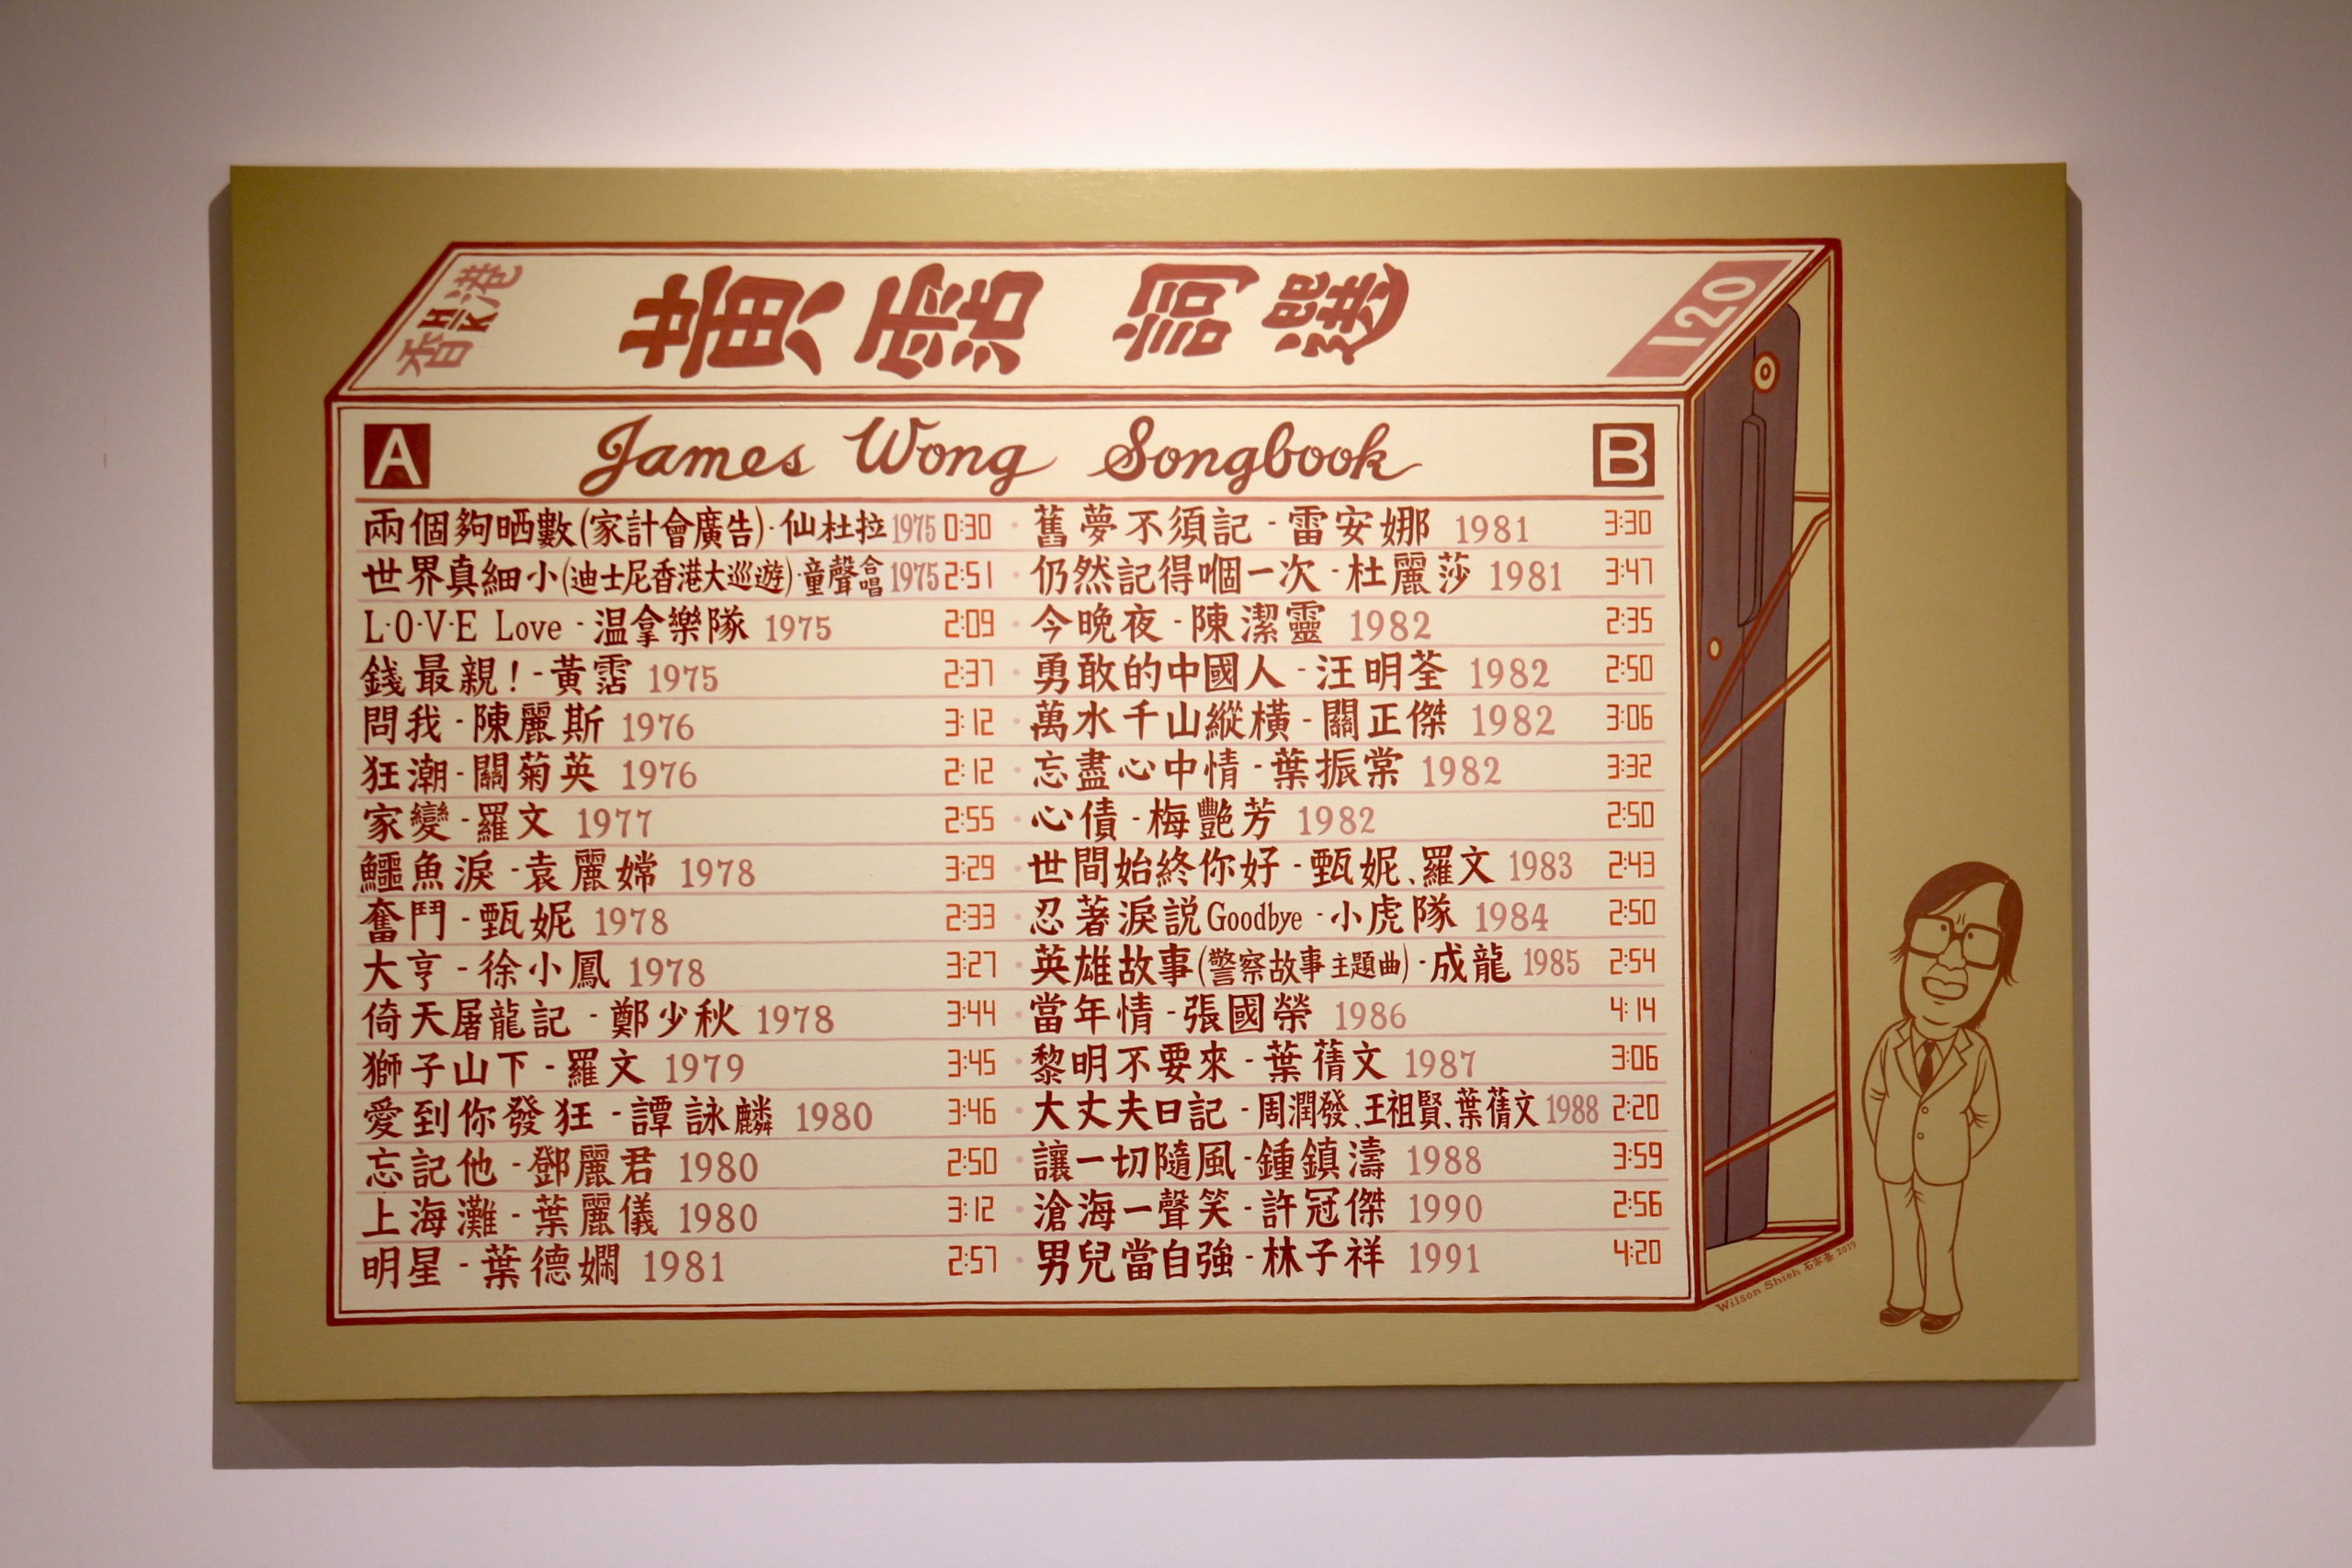 香港 HK
黃霑 詞選
120
A
James Wong Songbook
B
兩個夠晒數(家計會廣告)·仙杜拉 1975 0:30
世界真細小(迪士尼香港大巡遊)·童聲合唱 1975 2:51
L·O·V·E Love - 温拿樂隊 1975 2:09
錢最親! - 黃霑 1975 2:37
問我 - 陳麗斯 1976 3:12
狂潮 - 關菊英 1976 2:12
家變 - 羅文 1977 2:55
鱷魚淚 - 袁麗嫦 1978 3:29
奮鬥 - 甄妮 1978 2:33
大亨 - 徐小鳳 1978 3:27
倚天屠龍記 - 鄭少秋 1978 3:44
獅子山下 - 羅文 1979 3:45
愛到你發狂 - 譚詠麟 1980 3:46
忘記他 - 鄧麗君 1980 2:50
上海灘 - 葉麗儀 1980 3:12
明星 - 葉德嫻 1981 2:57
舊夢不須記 - 雷安娜 1981 3:30
仍然記得嗰一次 - 杜麗莎 1981 3:47
今晚夜 - 陳潔靈 1982 2:35
勇敢的中國人 - 汪明荃 1982 2:50
萬水千山縱橫 - 關正傑 1982 3:06
忘盡心中情 - 葉振棠 1982 3:32
心債 - 梅艷芳 1982 2:50
世間始終你好 - 甄妮、羅文 1983 2:43
忍著淚説Goodbye - 小虎隊 1984 2:50
英雄故事(警察故事主題曲) - 成龍 1985 2:54
當年情 - 張國榮 1986 4:14
黎明不要來 - 葉蒨文 1987 3:06
大丈夫日記 - 周潤發、王祖賢、葉蒨文 1988 2:20
讓一切隨風 - 鍾鎮濤 1988 3:59
滄海一聲笑 - 許冠傑 1990 2:56
男兒當自強 - 林子祥 1991 4:20
Wilson Shieh 石家豪 2019